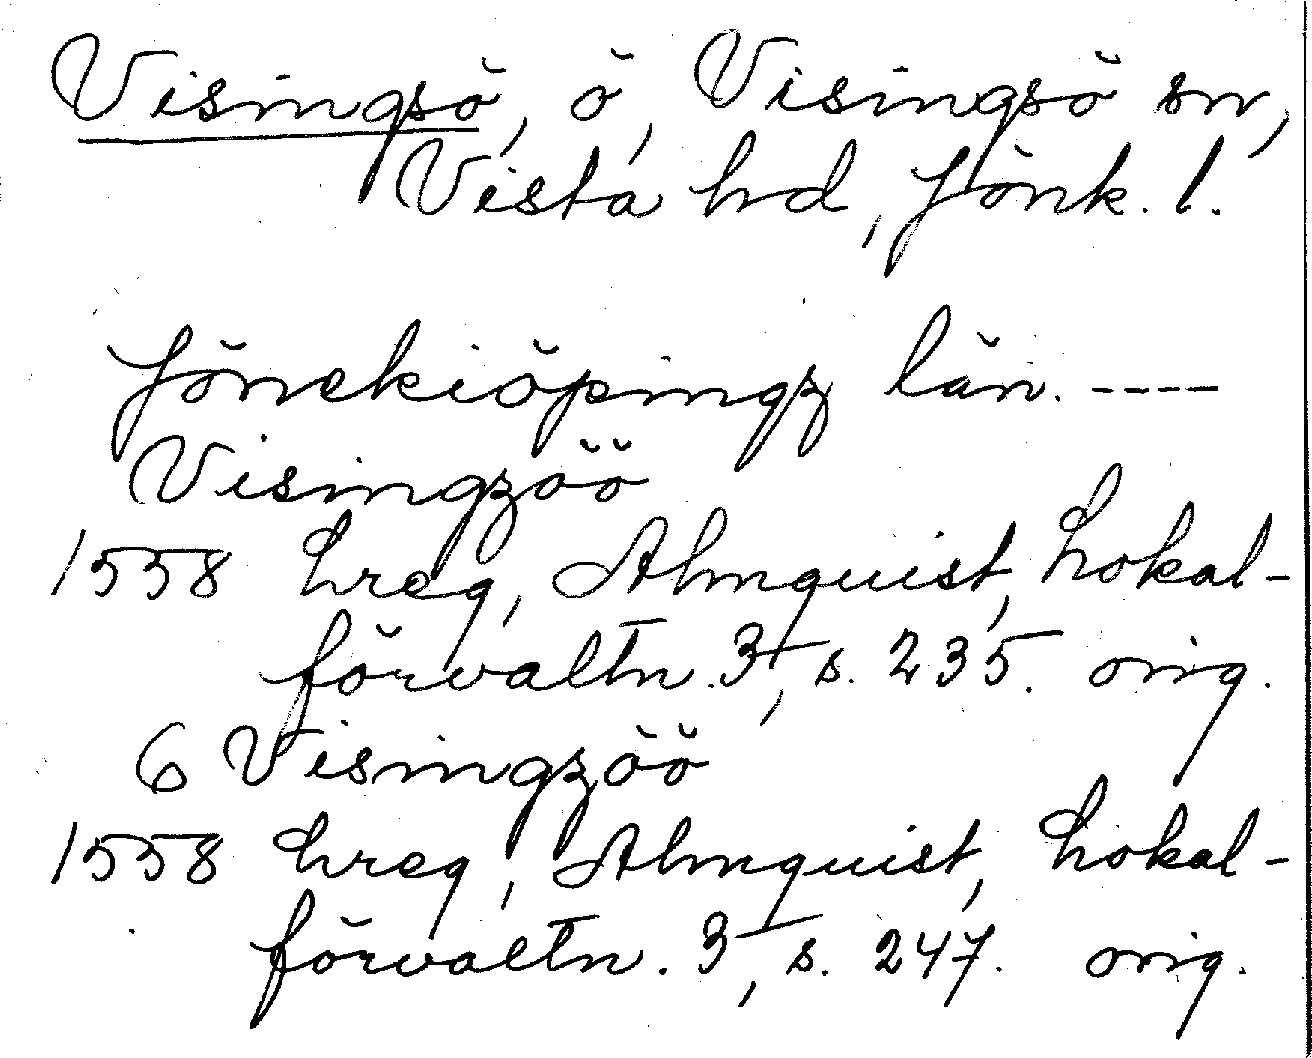 Visingsö, ö, Visingsö sn,
Vista hd, Jönk. l.
Jönekiöpingz län. ----
Visingzöö
1558 Lreg, Almquist, Lokal-
förvaltn. 3, s. 235. orig.
6 Visingzöö
1558 Lreg, Almquist, Lokal-
förvaltn. 3, s. 247. orig.